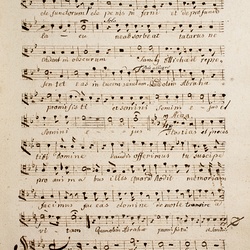 defunctorum de poenis in ferni et de profundo
la cu ne absorbeat tartarus ne
cadant in obscurum sanctus Michael repre
sen tet eas in lucem sanctam Quam olim Abrahae
promisisti et semini semini ejus
Semini ejus Hostias et preces
tibi Domine laudis offerimus tu suscipe
pro animabus illis quarum hodie memoriam
facimus fac eas domine de morte transire ad
vi tam Quam olim Abrahae promisisti